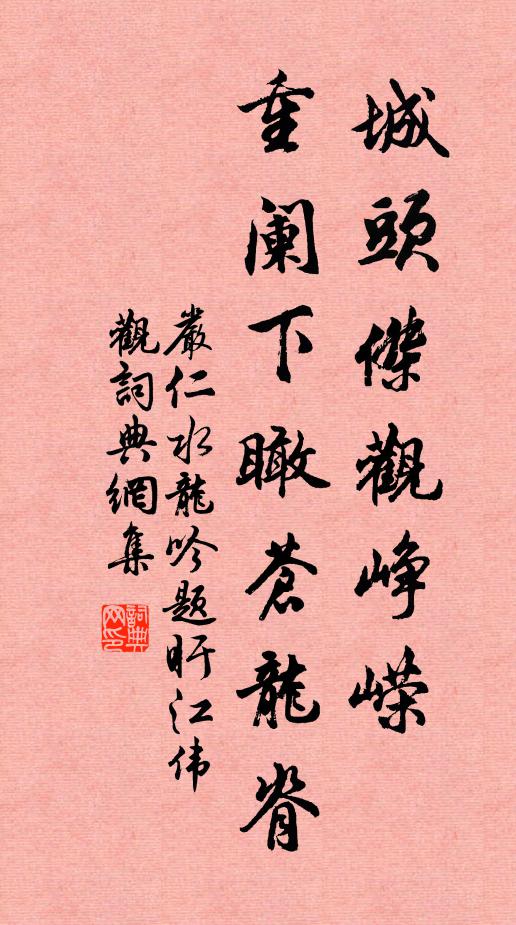 城頭傑觀峥嶸
重阑下瞰蒼龍脊
嚴仁水龍吟題盱江伟
觀詞典網集
詞典網印